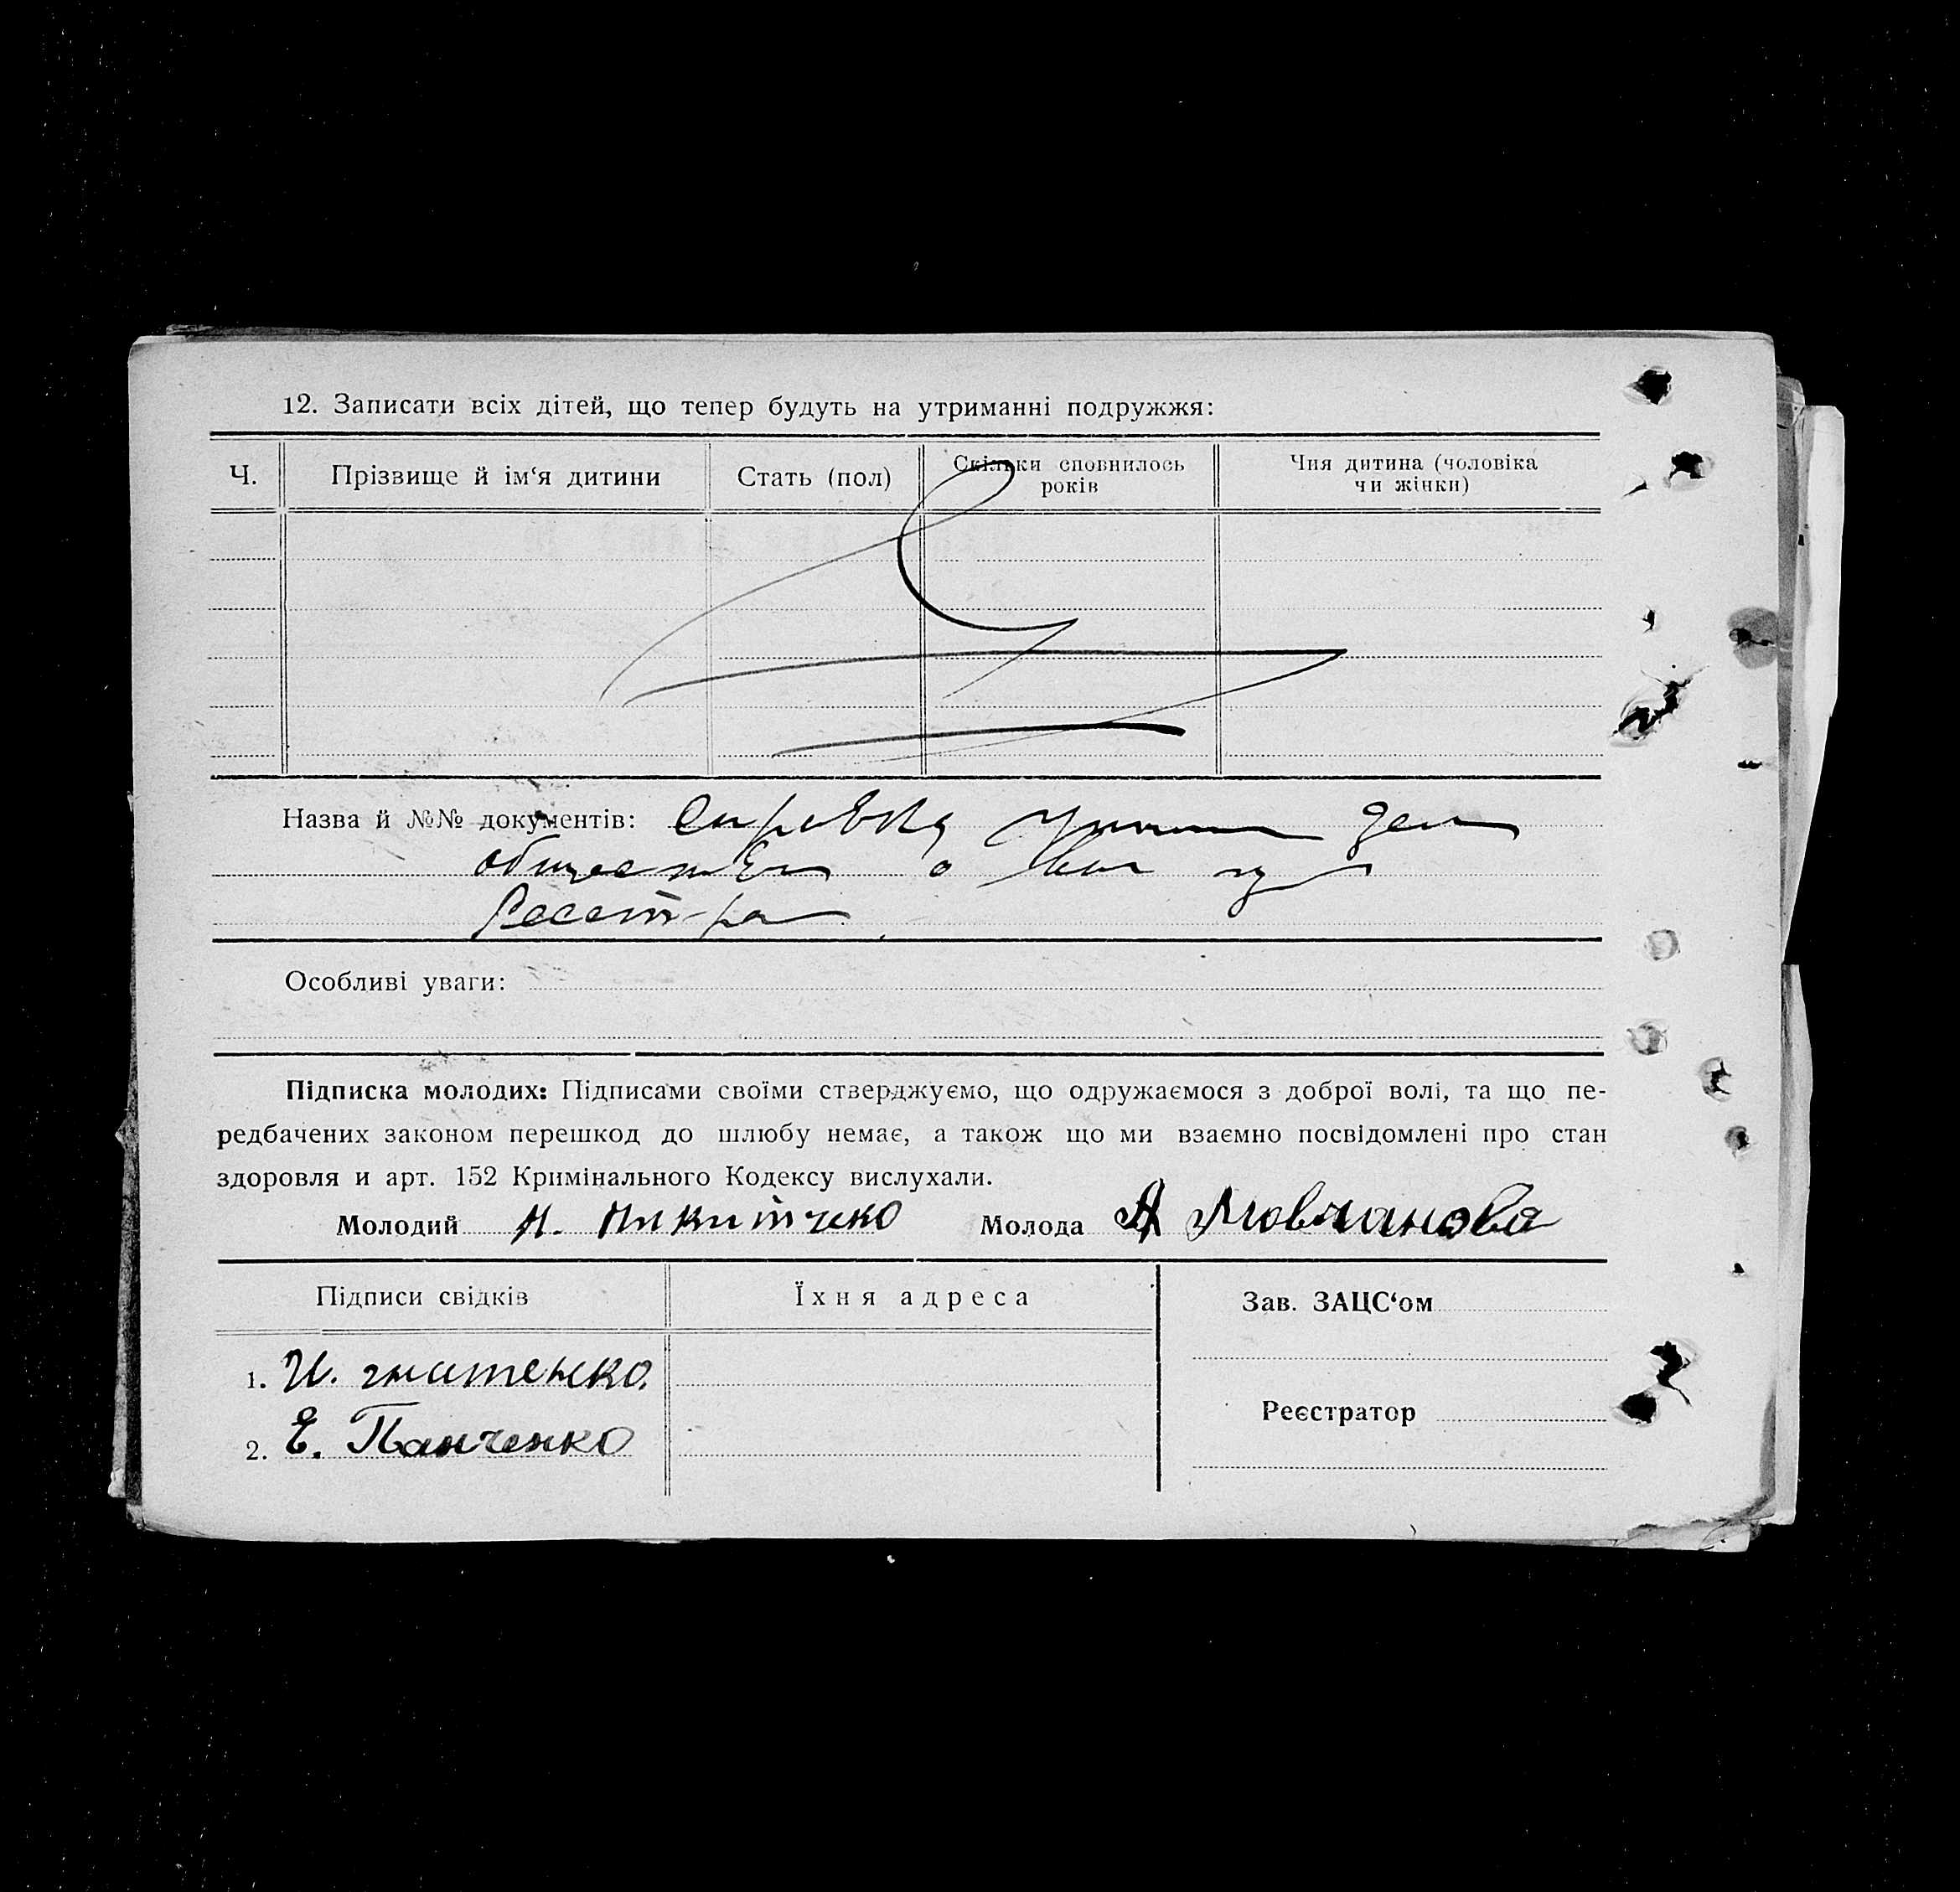 12. Записати всіх дітей, що тепер будуть на утриманні подружжя:
Ч.
Прізвище й ім‘я дитини
Стать (пол)
Скільки сповнилось
років
Чия дитина (чоловіка
чи жінки)
Назва й №№ документів: Справка
о
Реестра
Особливі уваги:
Підписка молодих: Підписами своїми стверджуємо, що одружаємося з доброї волі, та що пе-
редбачених законом перешкод до шлюбу немає, а також що ми взаємно посвідомлені про стан
здоровля и арт. 152 Кримінального Кодексу вислухали.
Молодий Н. Никитченко Молода А Мовчанова
Підписи свідків
Їхня адреса
Зав. ЗАЦС‘ом
1. И. гнатенко.
Реєстратор
2. Е. Панченко